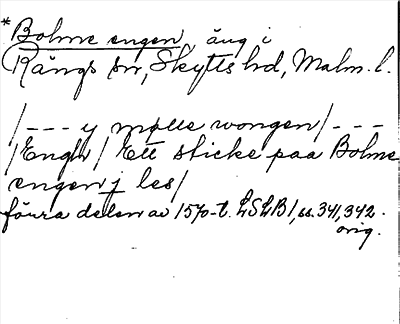 *Bolme engen, äng i
Rängs sn, Skytts hd, Malm. l.
/--- y mølle wongen/---
/Engh/ Ett sticke paa Bolme
engen j les/
förra delen av 1570-t. LSLB1, ss. 341, 342.
orig.